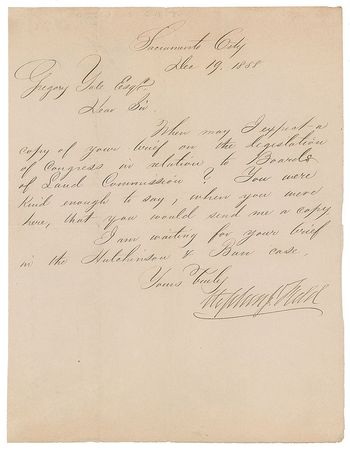 Sacramento City
Dec 19. 1858
Gregory Yale Esqr.
Dear Sir.
When may I expect a
copy of your brief on the legislation
of Congress in relation to Boards
of Land Commission? You were
kind enough to say, when you were
here, that you would send me a copy
I am waiting for your brief
in the Hutchinson & Burr case.
Yours truly
Stephen J. Field